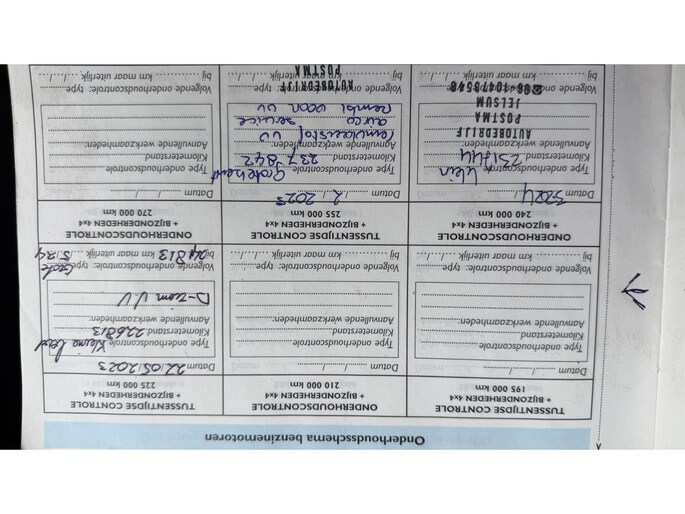 Onderhoudsschema benzinemotoren
TUSSENTIJDSE CONTROLE
+ BIJZONDERHEDEN 4x4
195 000 km
Datum ....../....../......
Type onderhoudscontrole
Kilometerstand
Aanvullende werkzaamheden:
Volgende onderhoudscontrole: type
bij km maar uiterlijk ..../..../....
ONDERHOUDSCONTROLE
+ BIJZONDERHEDEN 4x4
210 000 km
Datum ....../....../......
Type onderhoudscontrole
Kilometerstand
Aanvullende werkzaamheden:
Volgende onderhoudscontrole: type
bij km maar uiterlijk ..../..../....
TUSSENTIJDSE CONTROLE
+ BIJZONDERHEDEN 4x4
225 000 km
Datum 22/05/2023
Type onderhoudscontrole Kleine beurt
Kilometerstand 226813
Aanvullende werkzaamheden:
Volgende onderhoudscontrole: type Grote
bij km maar uiterlijk
ONDERHOUDSCONTROLE
+ BIJZONDERHEDEN 4x4
240 000 km
Datum
Type onderhoudscontrole Klein
Kilometerstand
Aanvullende werkzaamheden:
AUTOBEDRIJF
POSTMA
JELSUM
Volgende onderhoudscontrole: type
bij km maar uiterlijk
TUSSENTIJDSE CONTROLE
+ BIJZONDERHEDEN 4x4
255 000 km
Datum
Type onderhoudscontrole Grote beurt
Kilometerstand 237842
Aanvullende werkzaamheden:
remvloeistof VV
airco service
Volgende onderhoudscontrole: type
AUTOBEDRIJF
bij km maar uiterlijk
POSTMA
ONDERHOUDSCONTROLE
+ BIJZONDERHEDEN 4x4
270 000 km
Datum ....../....../......
Type onderhoudscontrole
Kilometerstand
Aanvullende werkzaamheden:
Volgende onderhoudscontrole: type
bij km maar uiterlijk ..../..../....